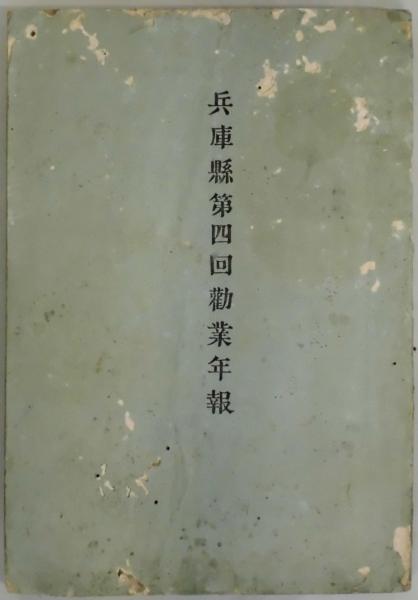 兵庫縣第四回勸業年報